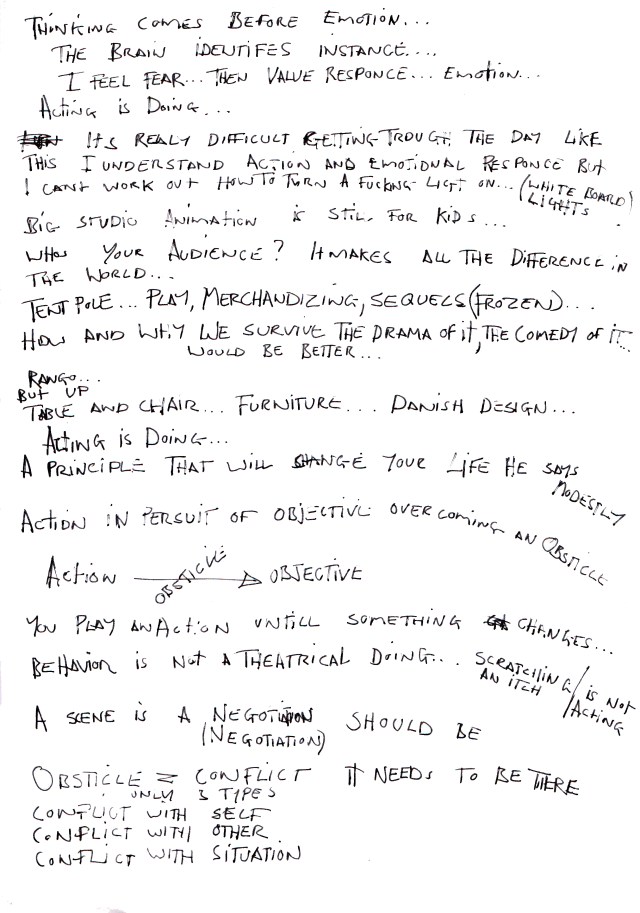 THINKING COMES BEFORE EMOTION...
THE BRAIN IDENTIFES INSTANCE....
I FEEL FEAR... THEN VALUE RESPONCE... EMOTION...
ACTING IS DOING...
ITS REALLY DIFFICULT GETTING TROUGT THE DAY LIKE
THIS I UNDERSTAND ACTION AND EMOTIONAL RESPONCE BUT
I CANT WORK OUT HOW TO TURN A FUCKING LIGT ON... (WHITE BOARD)
LIGHTS
BIG STUDIO ANIMATION IS STILL FOR KIDS...
WHOS YOUR AUDIENCE? IT MAKES ALL THE DIFFERENCE IN
THE WORLD...
TENT POLE... PLAY, MERCHANDIZING, SEQUELS (FROZEN)...
HOW AND WHY WE SURVIVE THE DRAMA OF IT, THE COMEDY OF IT...
WOULD BE BETTER...
RANGO...
BUT UP
TABLE AND CHAIR... FURNITURE... DANISH DESIGN...
ACTING IS DOING...
A PRINCIPLE THAT WILL CHANGE YOUR LIFE HE SAYS
MODESTLY
ACTION IN PERSUIT OF OBJECTIVE OVERCOMING AN OBSTICLE
ACTION OBSTICLE OBJECTIVE
YOU PLAY AN ACTION UNTILL SOMETHING CHANGES...
BEHAVIOR IS NOT A THEATRICAL DOING... SCRATCHING / IS NOT
AN ITCH / ACTING
A SCENE IS A NEGOTIATION SHOULD BE
(NEGOTIATION)
OBSTICLE = CONFLICT IT NEEDS TO BE THERE
ONLY 3 TYPES
CONFLICT WITH SELF
CONFLICT WITH OTHER
CONFLICT WITH SITUATION